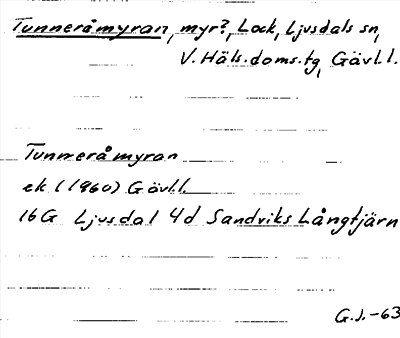 Tunneråmyran, myr?, Lock, Ljusdals sn,
V. Häls. doms.tg, Gävl.l.
Tunneråmyran
ek. (1960) Gävl.l.
16G Ljusdal 4d Sandviks Långtjärn
G.J. -63